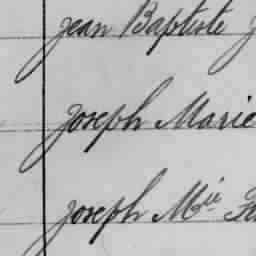 Jean Baptiste
Joseph Marie
Joseph Mie